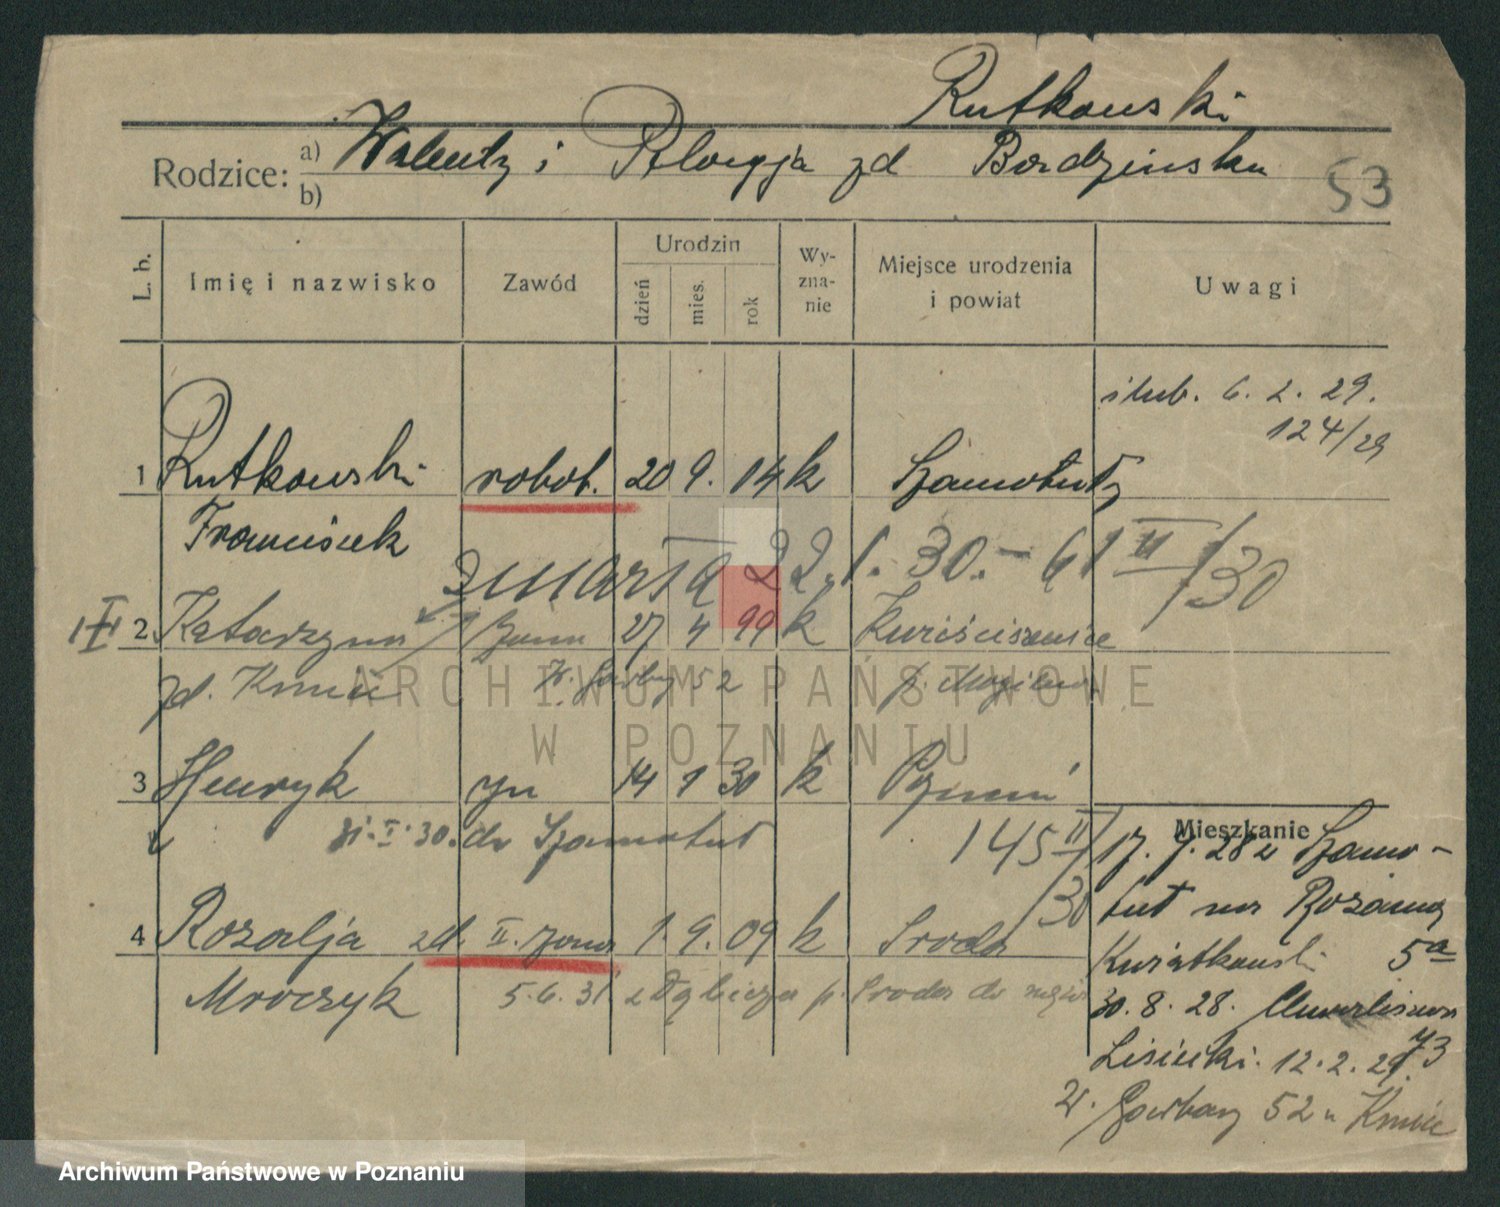 Rutkowski
Rodzice: a) Walenty i Pelagja zd
b)
53
L. b.
Imię i nazwisko
Zawód
Urodzin
dzień
mies.
rok
Wy-
zna-
nie
Miejsce urodzenia
i powiat
Uwagi
ślub. 6. 2. 29.
124/29
1 Rutkowski robot. 20 9. 14 k Szamotuły
Franciszek
zmarła 22. 1. 30. - 61 II/30
I 2 Katarzyna żona 27 4 99 k
zd. Kmieć W. Garbary 52 p. Mogilno
3 Henryk syn 14 1 30 k Poznań
31. I. 30. do Szamotuł
145 II/30
4 Rozalja zd. II. żona 1. 9. 09 k Środa
Mroczyk 5. 6. 31 z p. Środa do męża
Mieszkanie
17. 9. 28 z Szamo-
tuł na Różaną
Kwiatkowski 5a
30. 8. 28. Chwaliszewo
73
Lisiecki. 12. 2. 29.
W. Garbary 52 u Kmieć
ARCHIWUM PAŃSTWOWE
W POZNANIU
Archiwum Państwowe w Poznaniu